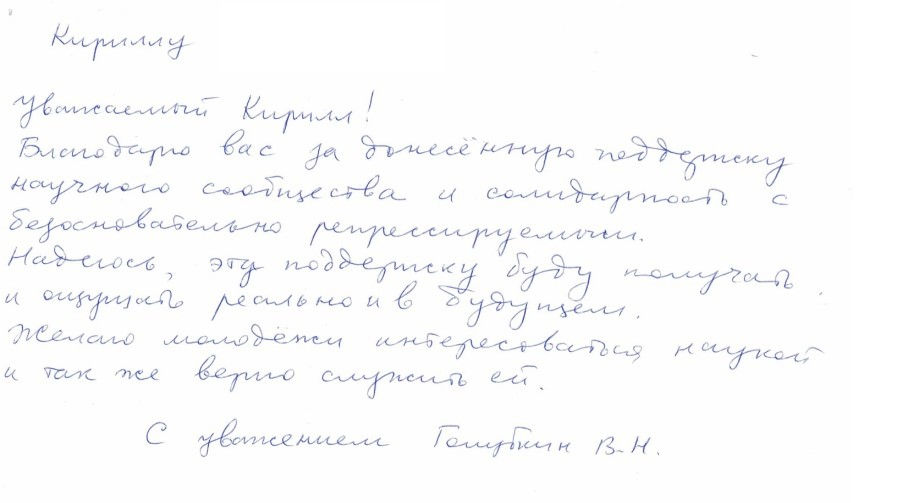 Кириллу
Уважаемый Кирилл!
Благодарю вас за донесённую поддержку
научного сообщества и солидарность с
безосновательно репрессируемыми.
Надеюсь, эту поддержку буду получать
и ощущать реально и в будущем.
Желаю молодёжи интересоваться наукой
и так же верно служить ей.
С уважением Голубкин В.Н.